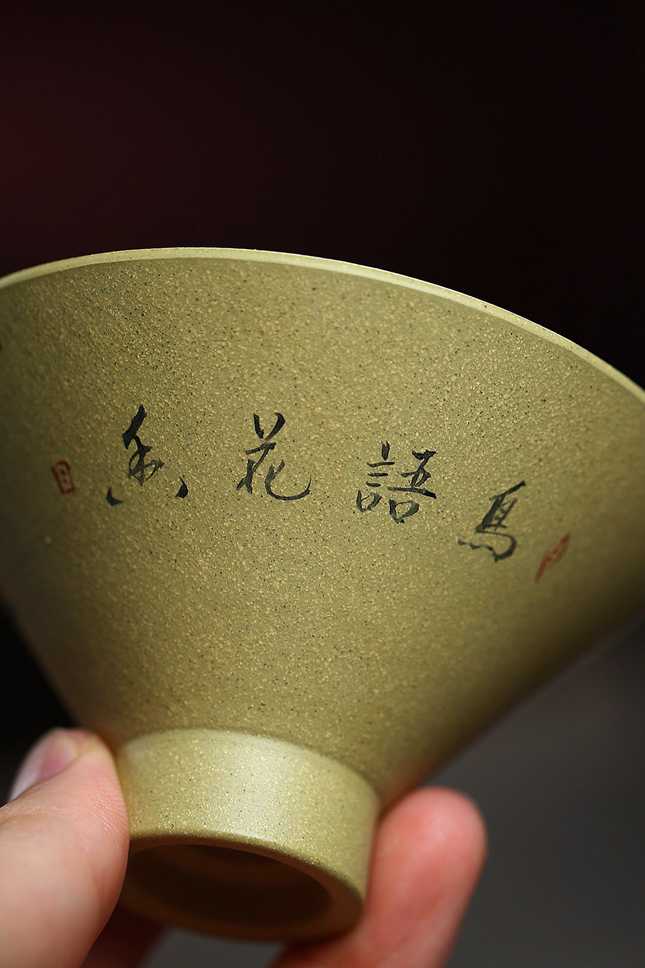 鳥語花香